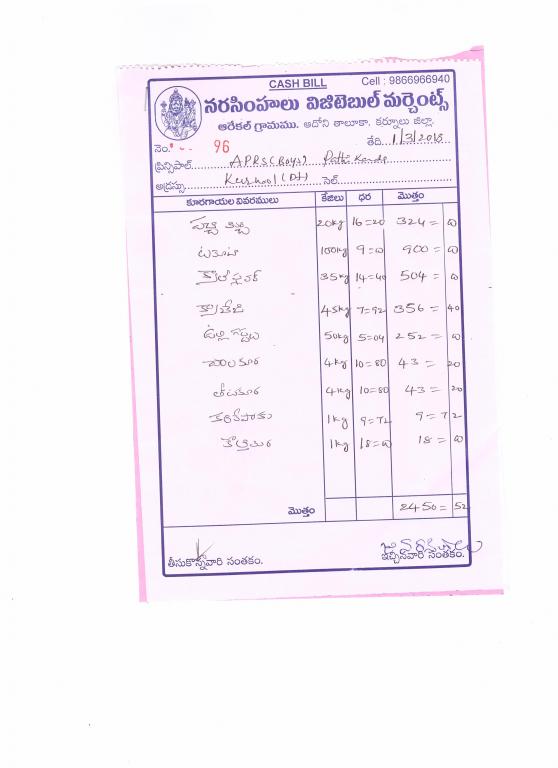 CASH BILL
Cell : 9866966940
నరసింహులు విజిటెబుల్ మర్చెంట్స్
ఆరేకల్ గ్రామము. ఆదోని తాలూకా, కర్నూలు జిల్లా.
నెం. 96 తేది 1/3/2018
ప్రిన్సిపాల్ APRS (Boys)
అడ్రస్సు Kurnool (Dt) సెల్
కూరగాయల వివరములు కేజిలు ధర మొత్తం
పచ్చి 20kg 16=20 324=0
టమోటా 100kg 9=0 900=0
కాలీఫ్లవర్ 35kg 14=40 504=0
క్యాబేజి 45kg 7=92 356=40
ఉల్లి గడ్డలు 50kg 5=04 252=0
పాలకూర 4kg 10=80 43=20
తోటకూర 4kg 10=80 43=20
కరివేపాకు 1kg 9=72 9=72
కొత్తిమీర 1kg 18=0 18=0
మొత్తం 2450=52
తీసుకొన్నవారి సంతకం. ఇచ్చినవారి సంతకం.